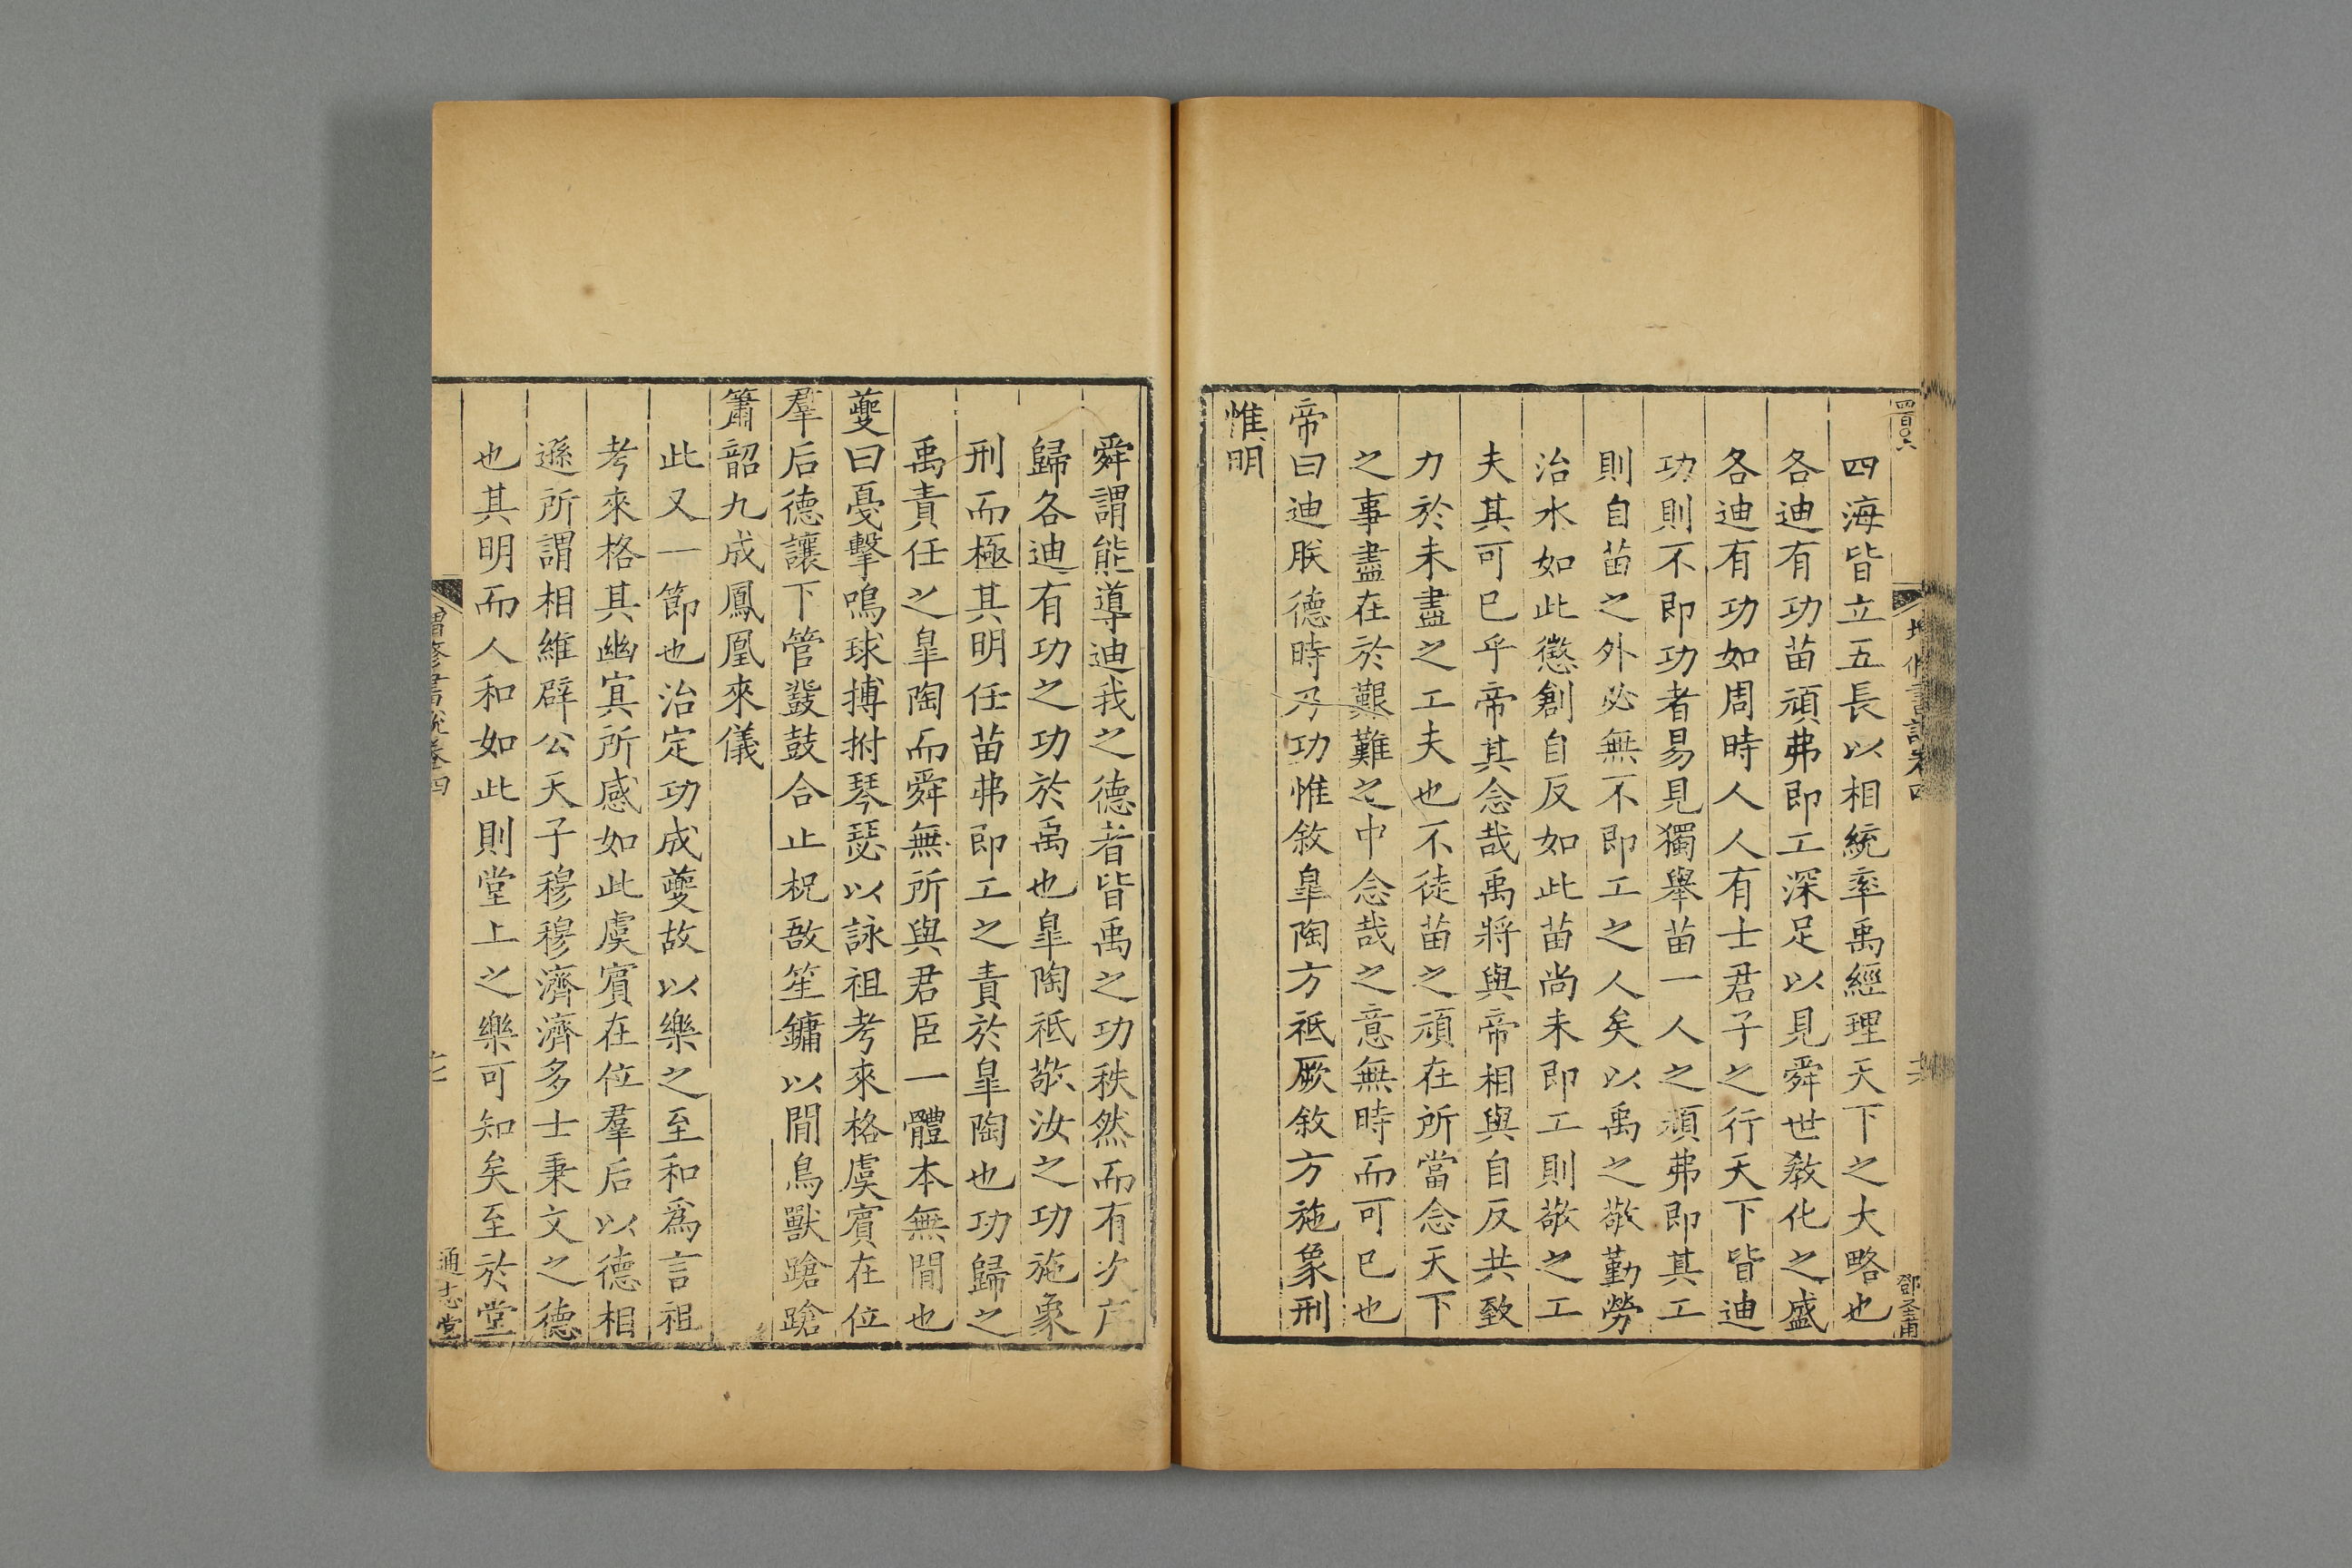 四百〇六
四海皆立五長以相統率禹經理天下之大略也
各迪有功苗頑弗即工深足以見舜世敎化之盛
各迪有功如周時人人有士君子之行天下皆迪
功則不即功者易見獨舉苗一人之頑弗即其工
則自苗之外必無不即工之人矣以禹之敬勤勞
治水如此懲創自反如此苗尚未即工則敬之工
夫其可已乎帝其念哉禹將與帝相與自反共致
力於未盡之工夫也不徒苗之頑在所當念天下
之事盡在於艱難之中念哉之意無時而可已也
帝曰迪朕德時乃功惟敘臯陶方祗厥敘方施象刑
惟明
舜謂能導迪我之德者皆禹之功秩然而有次序
歸各迪有功之功於禹也臯陶祗敬汝之功施象
刑而極其明任苗弗即工之責於臯陶也功歸之
禹責任之臯陶而舜無所與君臣一體本無閒也
夔曰戞擊鳴球搏拊琴瑟以詠祖考來格虞賓在位
羣后德讓下管鼗鼓合止柷敔笙鏞以閒鳥獸蹌蹌
簫韶九成鳳凰來儀
此又一節也治定功成夔故以樂之至和爲言祖
考來格其幽寘所感如此虞賓在位羣后以德相
遜所謂相維辟公天子穆穆濟濟多士秉文之德
也其明而人和如此則堂上之樂可知矣至於堂
增修書說卷四
通志堂